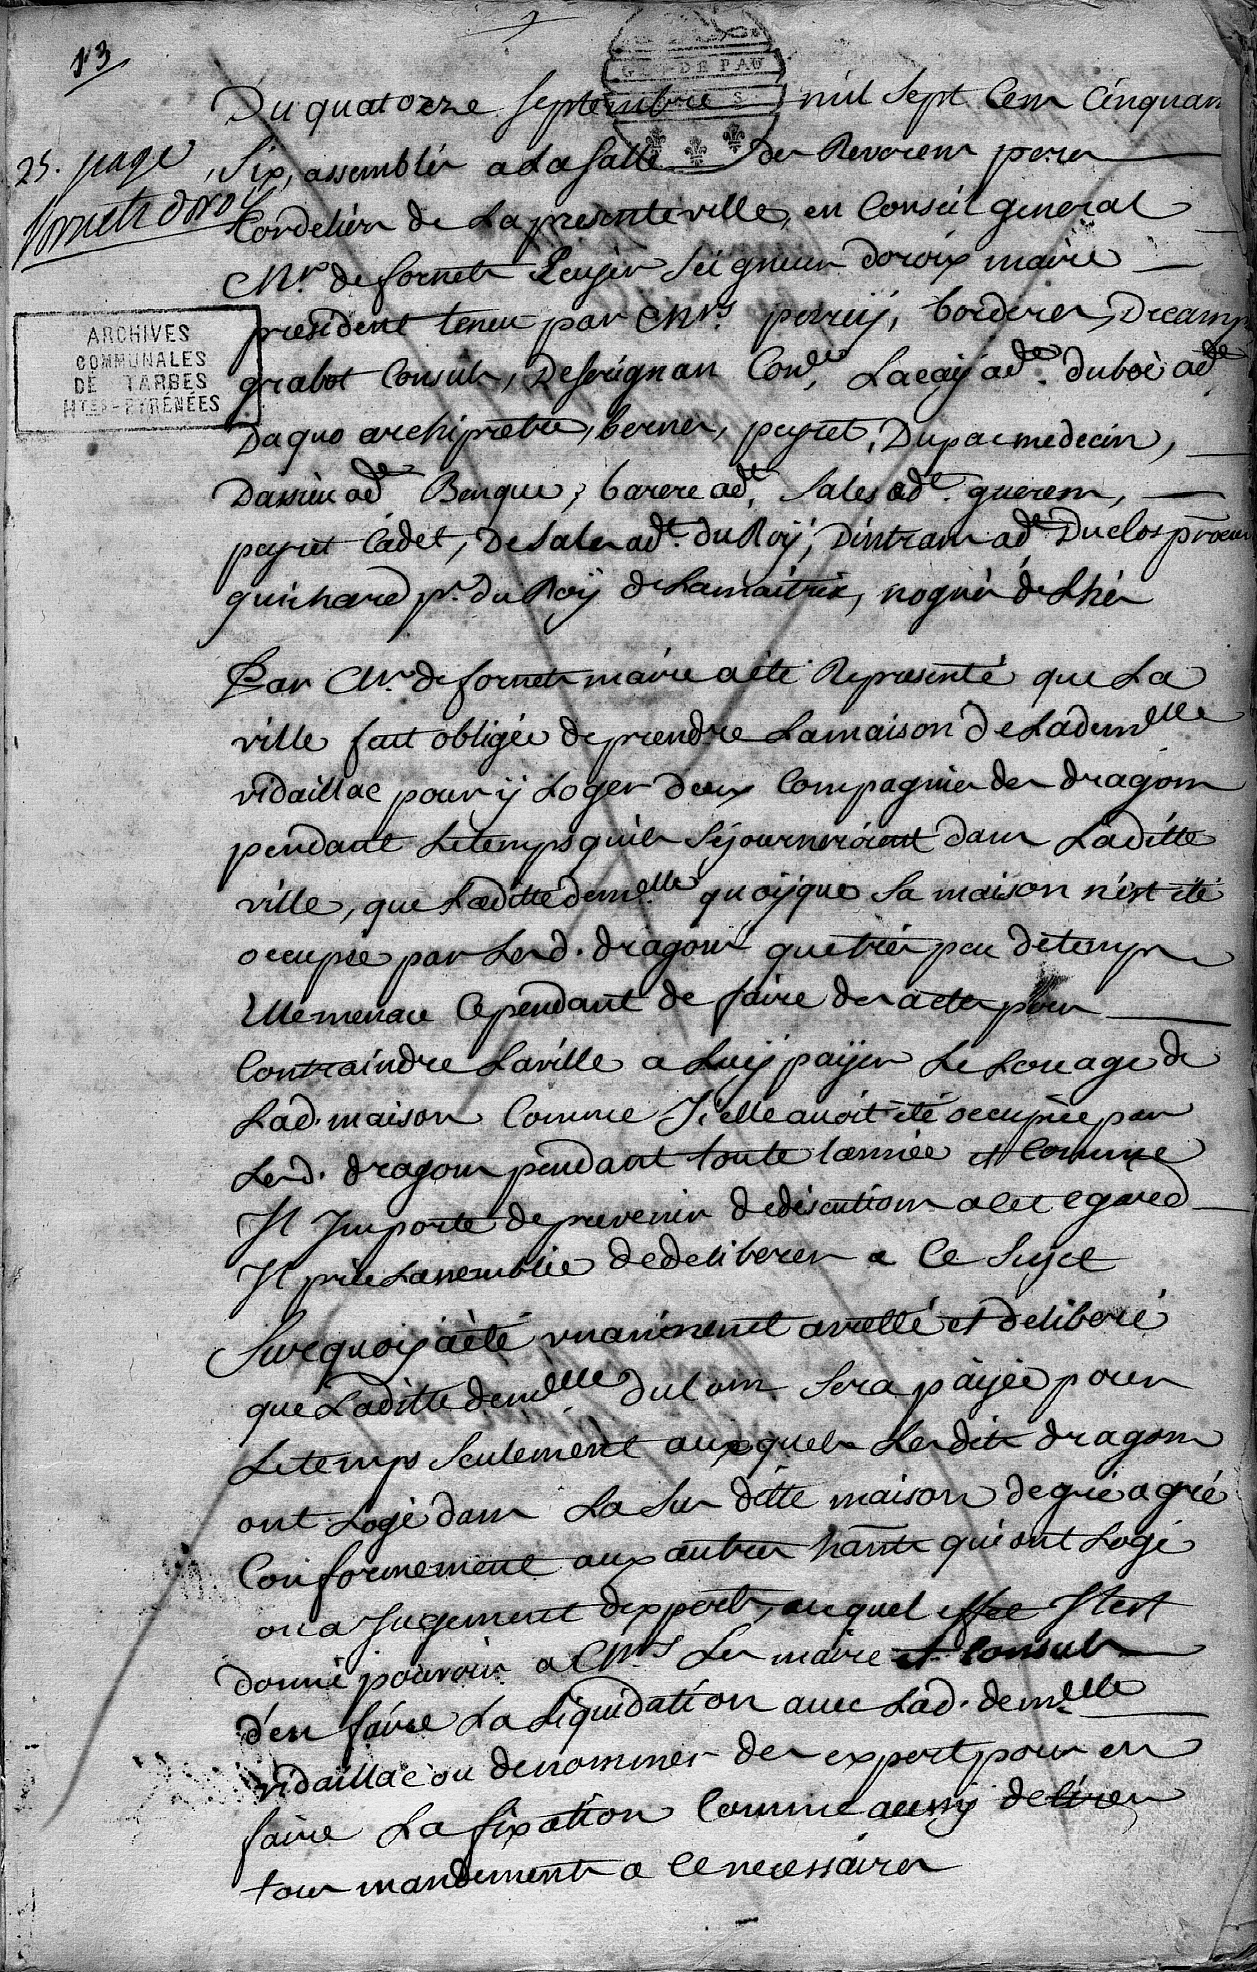 13
GEN DE PAU
Du quatorze septembre mil sept cem cinquan
25. page
six, assemblés a la salle des Reverens peres
fornets doroix
Cordeliers de la presente ville, en Conseil general
Mr. de fornets seigneur doroix maire
president tenu par Mrs. perreij, borderes, Decamp
ARCHIVES
COMMUNALES
DE TARBES
HTES-PYRÉNÉES
grabot Consuls, Deseignan Con.er, Lacaij ad. duboé ad.
Daquo archipretre, bernes, peyret, Dupac medecin,
Dassieu ad. Benque, barere ad.t, Sales ad.t guerem,
peyret Cadet, De Sales ad.t du Roij, Dintrans ad.t Duclos procur
guichard pr. du Roij de la maitrise, nogués de Lhés
Par Mr. de fornets maire a été Representé que La
ville fait obligée de prendre La maison de La demelle
vidaillac pour ij Loger deux Compagnies des dragons
pendant Le temps quils sejourneroient dans Laditte
ville, que Laditte demelle quoique Sa maison n'est été
occupée par Lesd. dragons que trés peu de temps
Elle menace Cependant de faire des actes pour
Contraindre La ville a Luij paijer Le Louage de
Lad. maison Comme Si elle avoit été occupée par
Lesd. dragons pendant toute lannée et Comme
Il Importe de prevenir de discutions a cet egared
Il prie Lassemblée de deliberer a Ce Sujet
Sur quoij a été unanimement arretté et deliberé
que Laditte demelle du Lom Sera païjée pour
Le temps Seulement auxquels Lesdits dragons
ont Logé dans La Sus ditte maison de gré a gré
Conformement aux autres hants qui ont Logé
ou a Jugement dexperts, auquel effet Il est
donné pouvoir a Mrs Les maire et Consuls
d'en faire La Liquidation avec Lad. demelle
vidaillac ou de nommer des expert pour en
faire La fixation Comme aussij de tirer
tous mandements a Ce necessaires